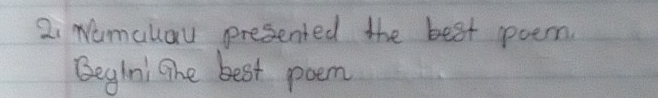 2. Namakau presented the best poem.
Begin: The best poem